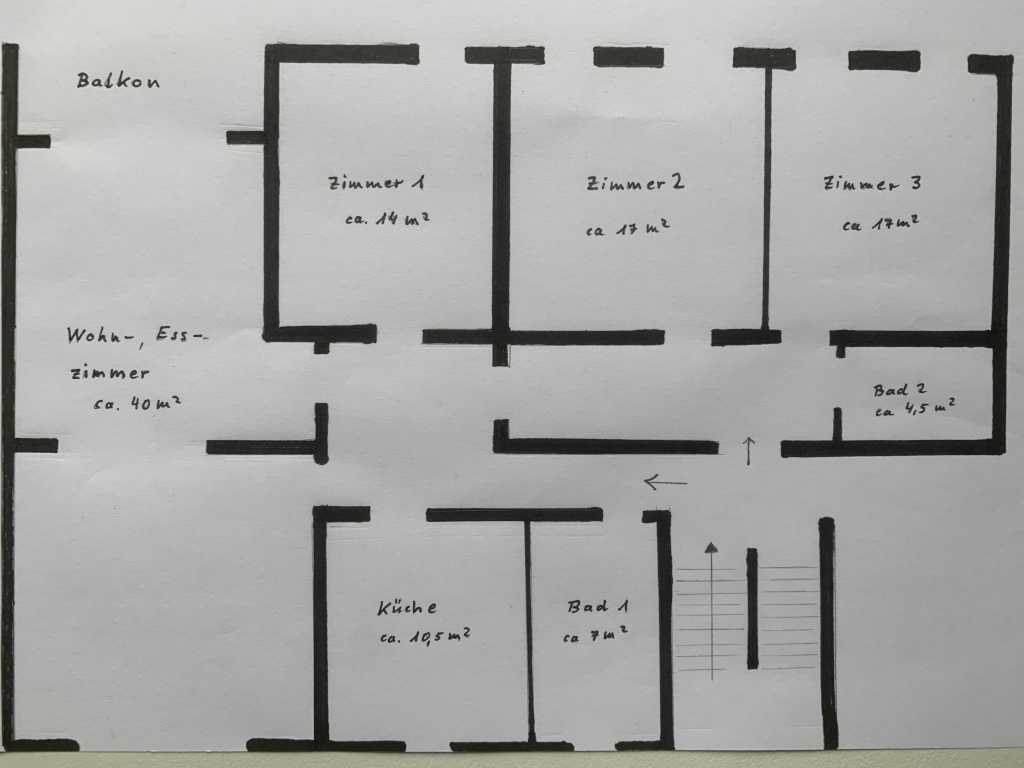 Balkon
Zimmer 1
ca. 14 m²
Zimmer 2
ca 17 m²
Zimmer 3
ca 17 m²
Wohn-, Ess-
zimmer
ca. 40 m²
Bad 2
ca 4,5 m²
Küche
ca. 10,5 m²
Bad 1
ca 7 m²